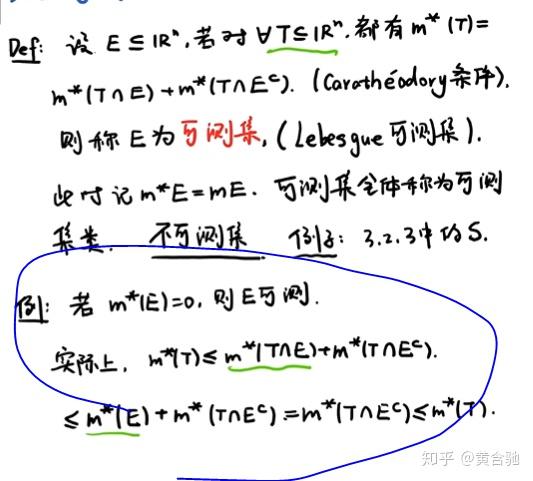 Def: 设 E ⊆ ℝⁿ, 若对 ∀T⊆ℝⁿ, 都有 m*(T)=
m*(T∩E)+m*(T∩Eᶜ). (Carathéodory条件).
则称 E 为可测集, (Lebesgue可测集).
此时记 m*E=mE. 可测集全体称为可测
集类. 不可测集 例子: 3.2.3中的S.
例: 若 m*(E)=0, 则E可测.
实际上, m*(T)≤m*(T∩E)+m*(T∩Eᶜ).
≤m*(E)+m*(T∩Eᶜ)=m*(T∩Eᶜ)≤m*(T).
知乎 @黄含驰